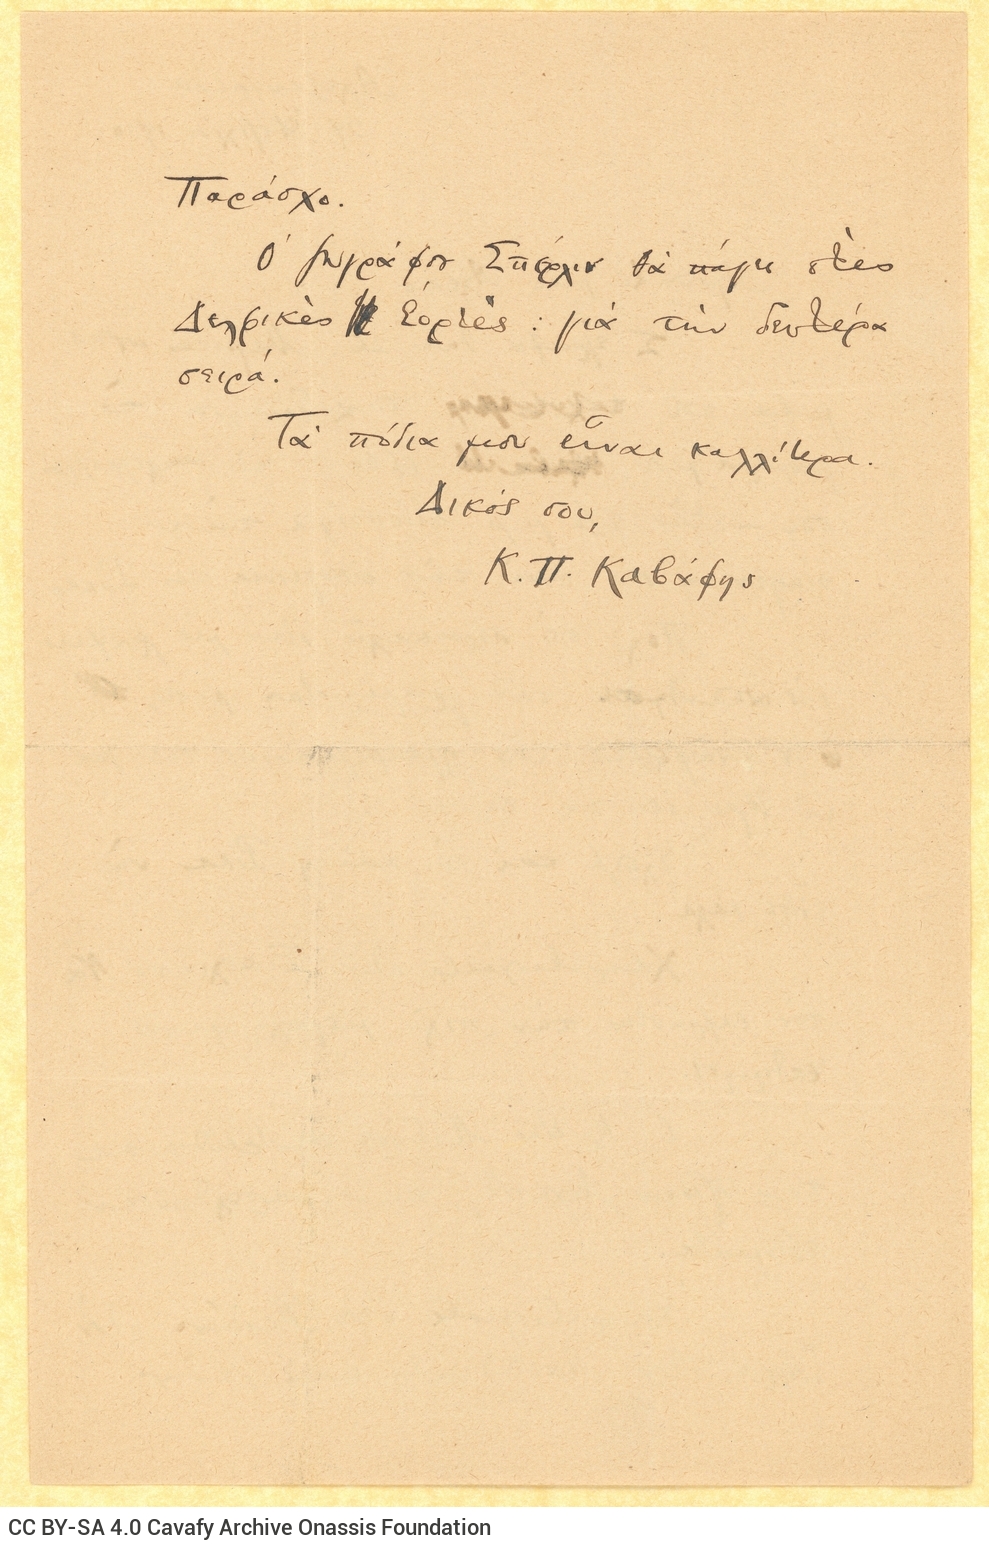 Παράσχο.
Ὁ ζωγράφος Σπέρλιν θὰ πάγει στὲς
Δελφικὲς Ἑορτές : γιὰ τὴν δευτέρα
σειρά.
Τὰ πόδια μου εἶναι καλλίτερα.
Δικός σου,
Κ. Π. Καβάφης
CC BY-SA 4.0 Cavafy Archive Onassis Foundation